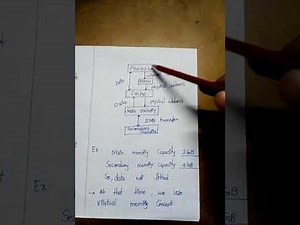 Data
Physical address
Cache
Data
Physical address
Main memory
DMA transfer
Secondary
Ex
Ex Main memory capacity 1GB
Secondary memory capacity 4GB
So, data not fitted
→ At that time, we use
Virtual memory concept